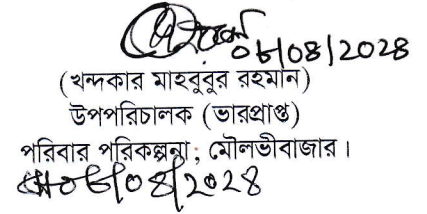 ০৮/০৪/২০২৪
(খন্দকার মাহবুবুর রহমান)
উপপরিচালক (ভারপ্রাপ্ত)
পরিবার পরিকল্পনা; মৌলভীবাজার।
০৮/০৪/২০২৪